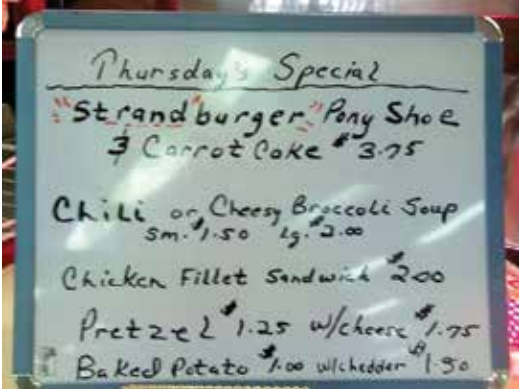 Thursday's Special
"Strand"burger" Pony Shoe
& Carrot Cake $3.75
Chili or Cheesy Broccoli Soup
Sm. $1.50 Lg. $2.00
Chicken Fillet Sandwich $2.00
Pretzel $1.25 w/cheese $1.75
Baked Potato $1.00 w/chedder $1.50